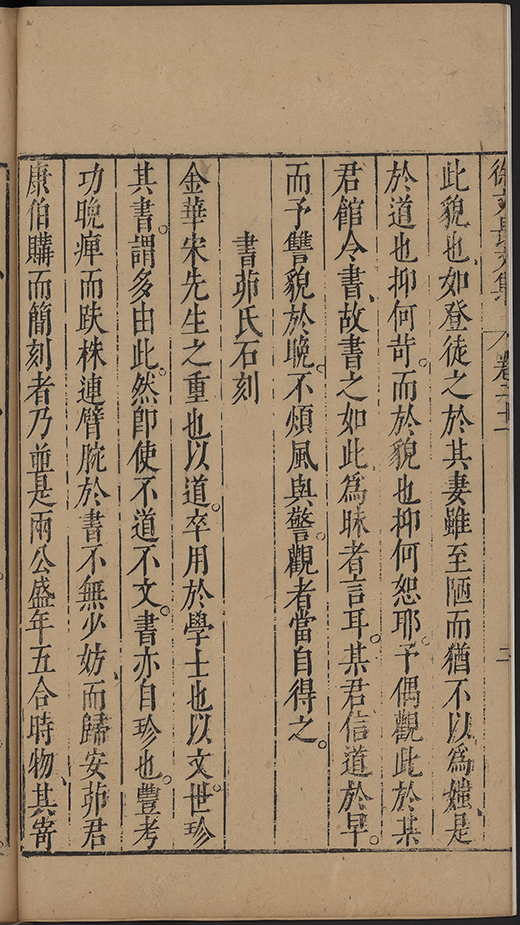 徐文長文集 卷二十 二
此貌也、如登徒之於其妻雖至陋而猶不以爲媸、是
於道也抑何苛。而於貌也抑何恕耶。予偶觀此於某
君館令書、故書之如此爲昧者言耳。某君信道於早。
而予讐貌於晚。不煩風與警。觀者當自得之。
書茆氏石刻
金華宋先生之重也以道。卒用於學士也以文。世珍
其書。謂多由此。然卽使不道不文。書亦自珍也。豐考
功晚痺而跌株連臂腕於書不無少妨、而歸安茆君
康伯購而簡刻者乃並是兩公盛年五合時物、其寄